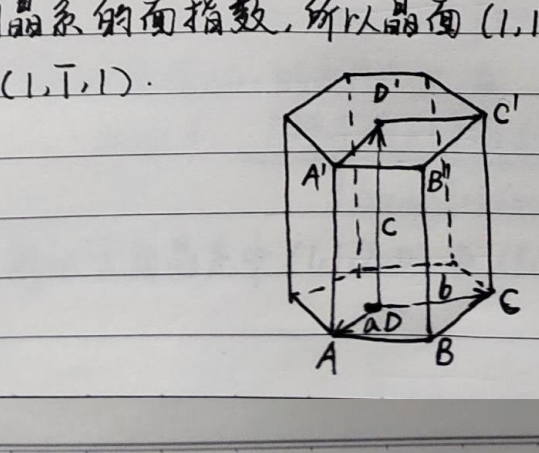 晶系的面指数,所以晶面 (1,1
(1,1̅,1).
D'
C'
A'
B'
C
b
C
a D
A
B